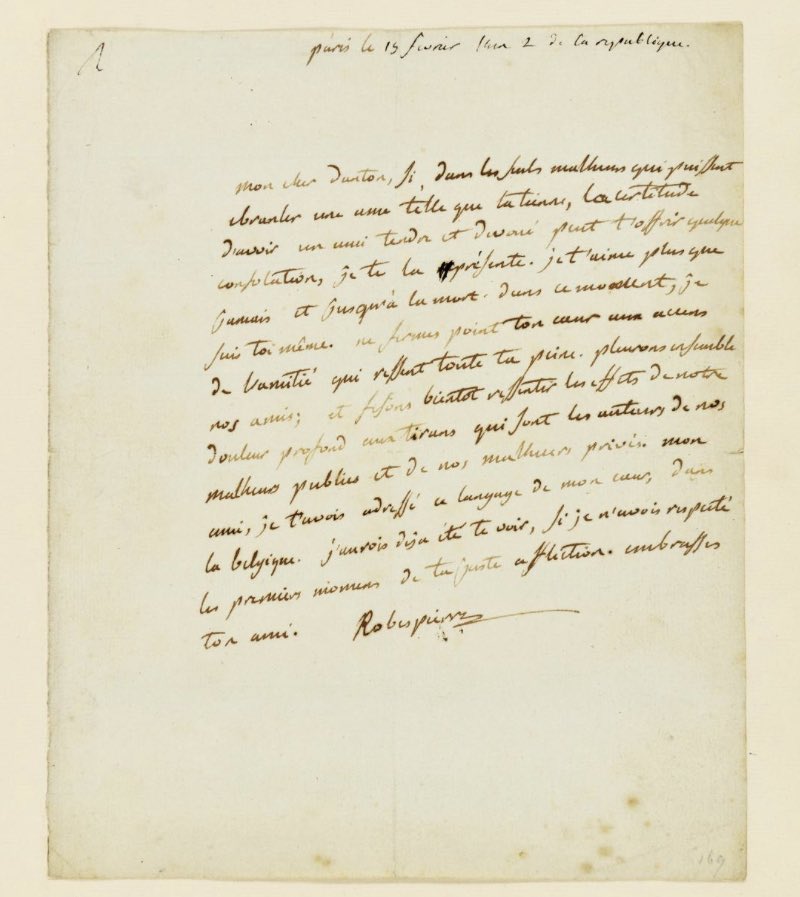 paris le 15 fevrier l'an 2 de la republique.
mon cher Danton, si, dans les seuls malheurs qui puissent
ebranler une ame telle que la tienne, la certitude
d'avoir un ami tendre et devoué peut t'offrir quelque
consolation, je te la présente. je t'aime plus que
jamais et jusqu'à la mort. dans ce moment, je
suis toi même. ne fermes point ton cœur aux accens
de l'amitié qui ressent toute ta peine. pleurons ensemble
nos amis; et fesons bientot ressentir les effets de notre
douleur profond aux tirans qui sont les auteurs de nos
malheurs publics et de nos malheurs privés. mon
ami, je t'avois adressé ce langage de mon cœur, dans
la belgique. j'aurois deja été te voir, si je n'avois respecté
les premiers momens de ta juste affliction. embrasses
ton ami. Robespierre
169